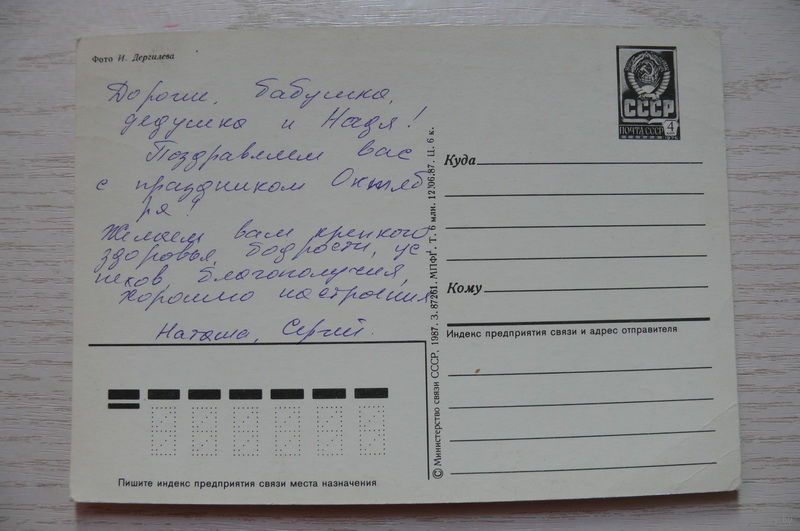 Фото И. Дергилева
Дорогие, бабушка,
дедушка и Надя!
Поздравляем вас
с праздником Октяб
ря!
Желаем вам крепкого
здоровья, бодрости, ус
пехов, благополучия,
хорошего настроения
Наташа, Сергей.
СССР
ПОЧТА СССР 4
Куда
Кому
Индекс предприятия связи и адрес отправителя
© Министерство связи СССР, 1987. З. 87261. МПФГ. Т. 6 млн. 12.06.87. Ц. 6 к.
Пишите индекс предприятия связи места назначения